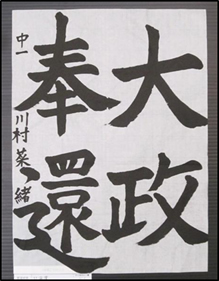 大政
奉還
中一 川村 菜緒